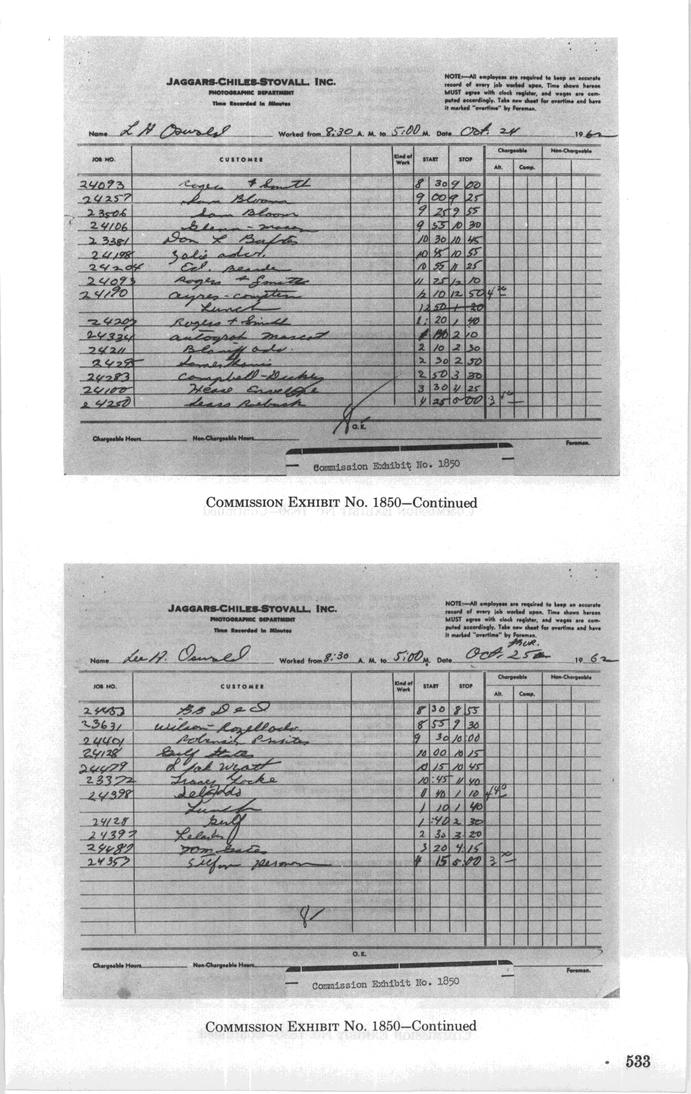 JAGGARS-CHILES-STOVALL, INC.
PHOTOGRAPHIC DEPARTMENT
Time Recorded in Minutes
NOTE:—All employees are required to keep an accurate
record of every job worked upon. Time shown hereon
MUST agree with clock register, and wages are com-
puted accordingly. Take new sheet for overtime and have
it marked "overtime" by Foreman.
Name L H Oswald Worked from 8:30 A. M. to 5:00 M. Date Oct. 24 1962
JOB NO. CUSTOMER Kind of Work START STOP Chargeable Non-Chargeable
Alt. Comp.
24093 Rogers & Smith 8 30 9 00
24257 Sam Bloom 9 00 9 25
23506 Sam Bloom 9 25 9 55
24106 Glenn- 9 55 10 30
23381 Don L Baxter 10 30 10 45
24198 adv. 10 45 10 55
24204 Ed. 10 55 11 25
24093 Rogers & Smith 11 25 12 10
24190 ayres-compton 12 10 12 50
Lunch 12 50 1 20
24207 Rogers & Smith 1:20 1 40
24334 autograph mascot 2 10
24211 ads. 2 10 2 30
2 30 2 50
24283 Campbell-Dickey 2 50 3 30
24100 Hesse Envelope 3 30 4 25
24250 Sears Roebuck 4 25 5 00
O.K.
Chargeable Hours Non-Chargeable Hours Foreman.
Commission Exhibit No. 1850
COMMISSION EXHIBIT No. 1850—Continued
JAGGARS-CHILES-STOVALL, INC.
PHOTOGRAPHIC DEPARTMENT
Time Recorded in Minutes
NOTE:—All employees are required to keep an accurate
record of every job worked upon. Time shown hereon
MUST agree with clock register, and wages are com-
puted accordingly. Take new sheet for overtime and have
it marked "overtime" by Foreman.
Name Lee H. Oswald Worked from 8:30 A. M. to 5:00 M. Date Oct. 25 1962
JOB NO. CUSTOMER Kind of Work START STOP Chargeable Non-Chargeable
Alt. Comp.
8 30 8 55
23631 Wilson 8 55 9 30
24401 9 30 10:00
24128 Gulf States 10 00 10 15
24479 Jack Wyatt 10 15 10 45
23372 Tracey Locke 10:45 11 40
24398 11 40 1 10
Lunch 1 10 1 40
24128 Gulf 1:40 2 30
24397 2 30 3 20
24487 Tom Gates 3 20 4 15
24357 4 15 5:00
O.K.
Chargeable Hours Non-Chargeable Hours Foreman.
Commission Exhibit No. 1850
COMMISSION EXHIBIT No. 1850—Continued
533